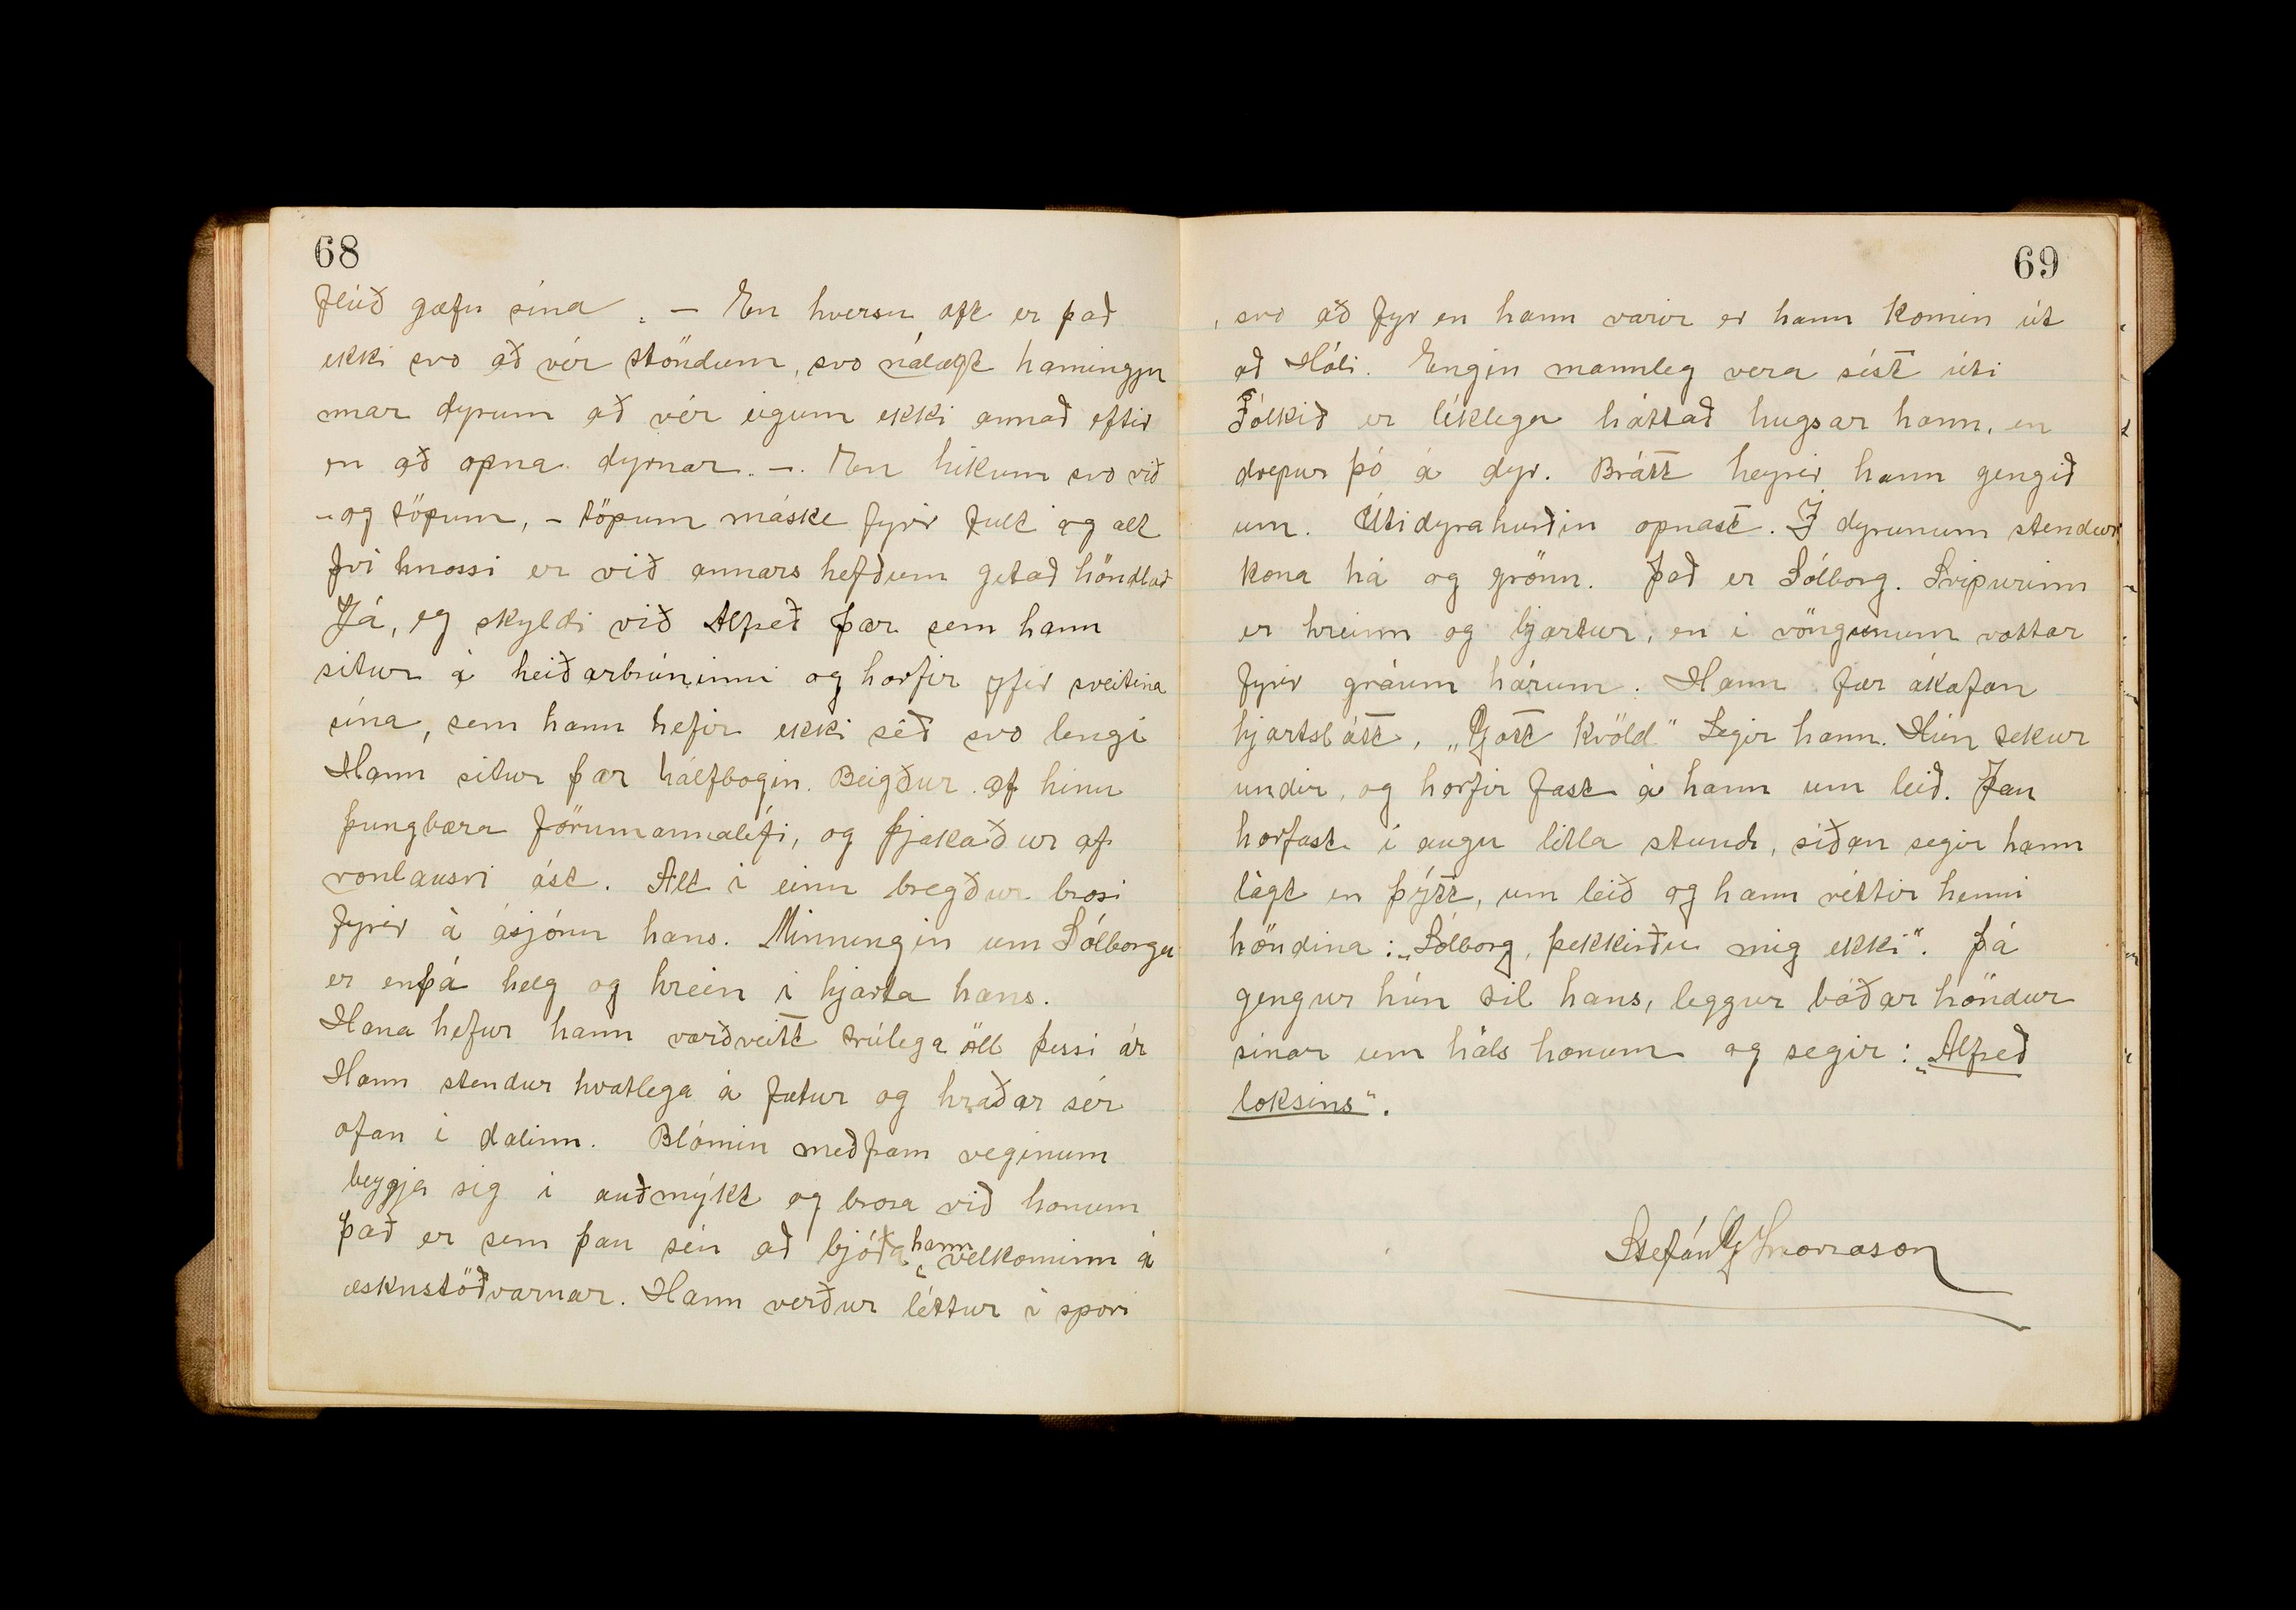 68
flúið gæfu sína. — En hversu oft er það
ekki svo að vér stöndum, svo nálægt hamingju
nnar dyrum að vér eigum ekki annað eftir
en að opna dyrnar. —. En hikum svo við
– og töpum, – töpum máske fyrir fult og alt
því hnossi er við annars hefðum getað höndlað
Já, eg skyldi við Alfreð þar sem hann
situr á heiðarbrúninni og horfir yfir sveitina
sína, sem hann hefir ekki séð svo lengi
Hann situr þar hálfbogin. Beigður af hinu
þungbæra förumannalífi, og þjakaður af
vonlausri ást. Alt í einu bregður brosi
fyrir á ásjónu hans. Minningin um Sólborgu
er enþá helg og hrein í hjarta hans.
Hana hefur hann varðveitt trúlega öll þessi ár
Hann stendur hvatlega á fætur og hraðar sér
ofan í dalinn. Blómin meðfram veginum
beygja sig í auðmýkt og brosa við honum
það er sem þau séu að bjóða hann velkominn á
æskustöðvarnar. Hann verður léttur í spori
69
, svo að fyr en hann varir er hann komin út
að Hóli. Engin mannleg vera sést úti
Fólkið er líklega háttað hugsar hann, en
drepur þó á dyr. Brátt heyrir hann gengið
um. Útidyrahurðin opnast. Í dyrunum stendur
kona há og grönn. Það er Sólborg. Svipurinn
er hreinn og bjartur, en í vöngunum vottar
fyrir gráum hárum. Hann fær ákafan
hjartslátt, „Gott kvöld" Segir hann. Hún tekur
undir, og horfir fast á hann um leið. Þau
horfast í augu litla stund, síðan segir hann
lágt en þýtt, um leið og hann réttir henni
höndina: „Sólborg, þekkirðu mig ekki". Þá
gengur hún til hans, leggur báðar höndur
sínar um háls honum og segir: „Alfreð
loksins".
Stefán G Snorrason